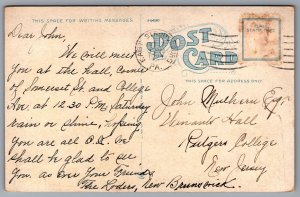 THIS SPACE FOR WRITING MESSAGES
POST
CARD
THIS SPACE FOR ADDRESS ONLY
Dear John,
We will meet
you at the Hall, Corner
of Somerset St. and College
Ave at 12.30 P.M. Saturday
rain or shine, hoping
you are all O.K. We
shall be glad to see
you. as ever Your Friends
The Loders, New Brunswick.
John Mulherre Esq
Winants Hall
Rutgers College
New Jersey